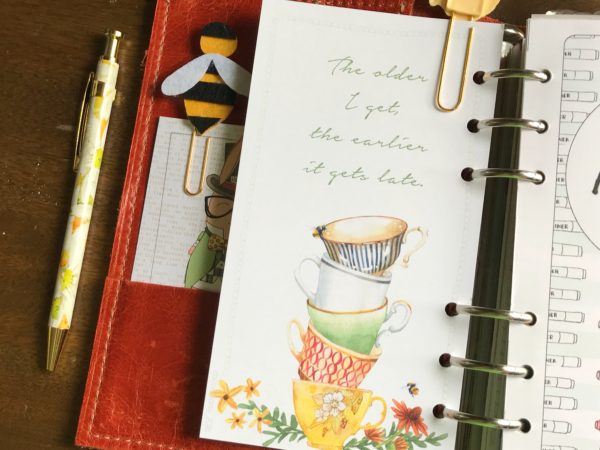 The older
I get,
the earlier
it gets late.